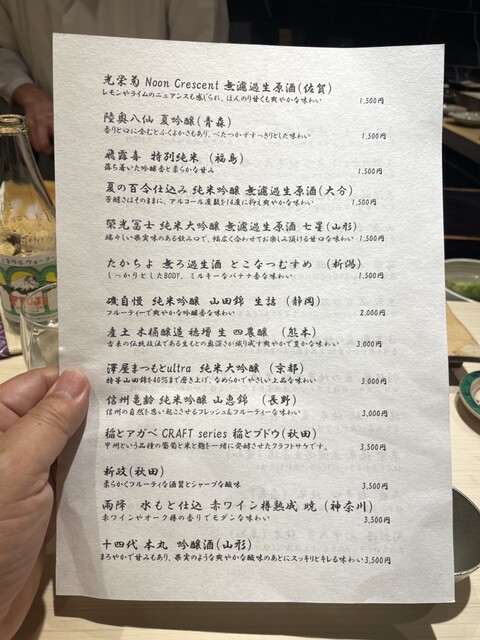 光栄菊 Noon Crescent 無濾過生原酒(佐賀)
レモンやライムのニュアンスも感じられ、ほんのり甘くも爽やかな味わい 1,500円
陸奥八仙 夏吟醸(青森)
香り口に含むとふくよかさもあり、べたつかずすっきりとした味わい 1,500円
飛露喜 特別純米 (福島)
落ち着いた吟醸香と柔らかな甘み 1,500円
夏の百合仕込み 純米吟醸 無濾過生原酒(大分)
芳醇さはそのままに、アルコール度数を14度に抑え爽やかな味わい 1,500円
榮光冨士 純米大吟醸 無濾過生原酒 七星(山形)
瑞々しい果実味のある飲み口で、幅広く合わせてお楽しみ頂ける甘口な味わい 1,500円
たかちよ 無ろ過生酒 とこなつむすめ (新潟)
しっかりとしたBODY、ミルキーなバナナ香な味わい 1,500円
磯自慢 純米吟醸 山田錦 生詰 (静岡)
フルーティーで爽やかな吟醸香な味わい 2,000円
産土 木桶醸造 穂増 生 四農醸 (熊本)
古来の伝統技法である生もとの奥深さが織り成す爽やかで豊かな味わい 3,000円
澤屋まつもとultra 純米大吟醸 (京都)
特等山田錦を40%まで磨き上げ、なめらかでやさしい上品な味わい 3,000円
信州亀齢 純米吟醸 山恵錦 (長野)
信州の自然を思い起こさせるフレッシュ&フルーティーな味わい 3,000円
稲とアガベ CRAFT series 稲とブドウ(秋田)
甲州という品種の葡萄と米と麹を一緒に発酵させたクラフトサケです。 3,500円
新政(秋田)
柔らかくフルーティな酒質とシャープな酸味 3,500円
雨降 水もと仕込 赤ワイン樽熟成 暁 (神奈川)
赤ワインやオーク樽の香りでモダンな味わい 3,500円
十四代 本丸 吟醸酒(山形)
まろやかで甘みもあり、果実のような爽やかな酸味のあとにスッキリとキレる味わい 3,500円